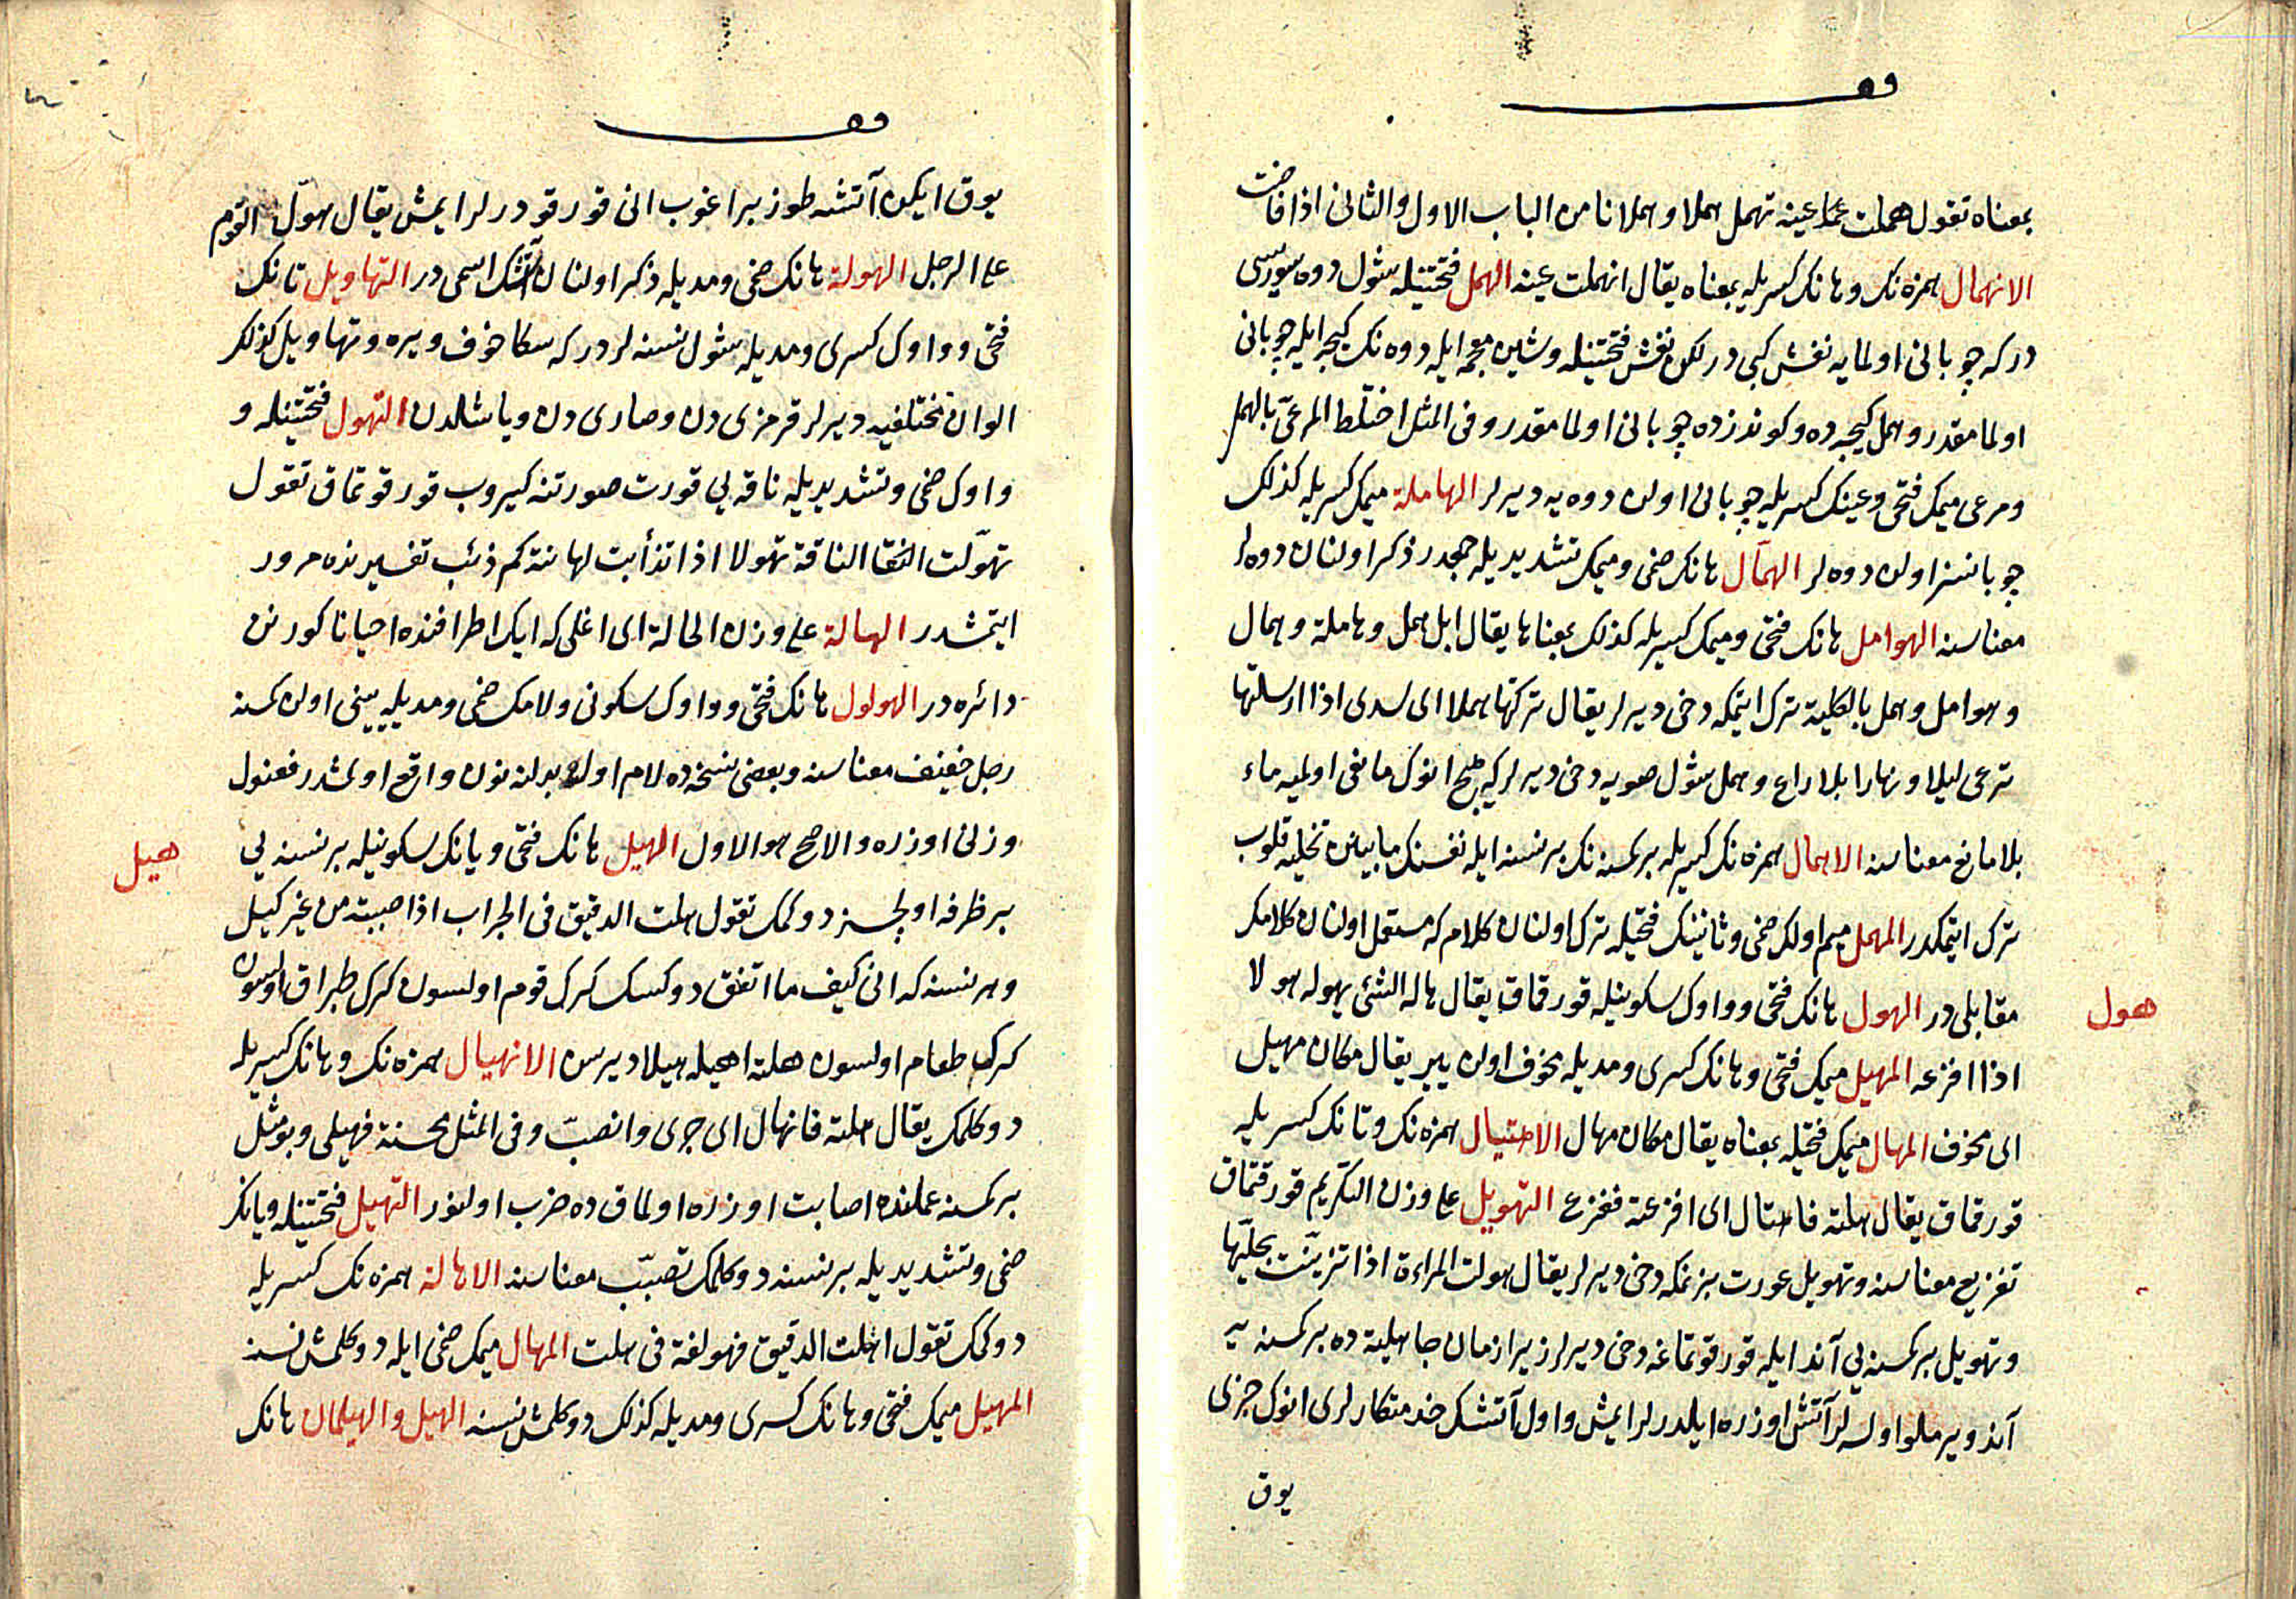 وقف
بمعناه تقول هملت عينه تهمل هملا وهملانا من الباب الاول والثانى اذا فاضت
الانهمال همزه نك وهانك كسريله بمعناه يقال انهملت عينه الهمل فتحتينله شول دوه سوريسى
در كه چوبانى اولمايه نفش كبى در لكن نفش فتحتينله وشين معجمه ايله دوه نك كيجه ايله چوبانى
اولمامقدر وهمل كيجه ده وكوندزده چوبانى اولمامقدر وفى المثل اختلط المرعىّ بالهمل
ومرعى ميمك فتحى وعينك كسريله چوبانى اولن دوه يه ديرلر الهاملة ميمك كسريله كذلك
چوبانسز اولن دوه لر الهمّال هانك ضمى وميمك تشديديله جمعدر ذكر اولنان دوه لر
معناسنه الهوامل هانك فتحى وميمك كسريله كذلك بمعناها يقال ابل همل وهاملة وهمال
وهوامل وهمل بالكلية ترك ايتمكه دخى ديرلر يقال تركتها هملا اى سدى اذا ارسلتها
ترعى ليلا ونهارا بلا راع وهمل شول صويه دخى ديرلر كه هيچ انوك مانعى اولميه ماء
بلا مانع معناسنه الاهمال همزه نك كسريله بر كمسنه نك بر نسنه ايله نفسنك مابينن تخليه قلوب
ترك ايتمكدر المهمل ميم اولك ضمى وثانينك فتحيله ترك اولنان كلام كه مستعمل اولنان كلامك
مقابلى در الهول هانك فتحى وواوك سكونيله قورقماق يقال هاله الشئ يهوله هولا
هول
اذا افزعه المهيل ميمك فتحى وهانك كسرى ومديله مخوف اولن يير يقال مكان مهيل
اى مخوف المهال ميمك فتحيله بمعناه يقال مكان مهال الاهتيال همزه نك وتانك كسريله
قورقماق يقال هلته فاهتال اى افزعته ففزع التهويل على وزن التكريم قورقتماق
تفزيع معناسنه وتهويل عورت بزنمكه دخى ديرلر يقال هولت المراءة اذا تزيّنت بحليّها
وتهويل بر كمسنه يى آند ايله قورقوتماغه دخى ديرلر زيرا زمان جاهليته ده بر كمسنه يه
آند ويرملو اولسه لر آتش اوزره ايلدرلر ايمش واول آتشك خدمتكارلرى انوك جزى
يوق
وقف
يوق ايكن آتشه طوز براغوب انى قورقودرلر ايمش يقال هوّل القوم
على الرجل الهولة هانك ضمى ومديله ذكر اولنان آتشك اسمى در التهاويل تانك
فتحى وواوك كسرى ومديله شول نسنه لردر كه سكا خوف ويره وتهاويل كذلك
الوان مختلفيه ديرلر قرمزى دن وصارى دن وياشلدن التهول فتحتينله و
واوك ضمى وتشديديله ناقه يى قورت صورتنه كيروب قورقوتماق تقول
تهوّلت الناقة تهولا اذا تذأبت لها نته كم ذئب تفسيرنده مرور
ايتمشدر الهالة على وزن الحالة اى اغلى كه ايك اطرافنده احيانا كورنن
دائره در الهولول هانك فتحى وواوك سكونى ولامك ضمى ومديله يينى اولن كمسنه
رجل خفيف معناسنه وبعضى نسخه ده لام اول بدلنه نون واقع اولمشدر فعنول
وزنى اوزره والاصح هو الاول الهيل هانك فتحى ويانك سكونيله بر نسنه يى
هيل
بر ظرفه اولچسز دوكمك تقول هلت الدقيق فى الجراب اذا صببته من غير كيل
وهر نسنه كه انى كيف ما اتفق دوكسك كرك قوم اولسون كرك طبراق اولسون
كرك طعام اولسون هلته اهيله هيلا ديرسن الانهيال همزه نك وهانك كسريله
دوكلمك يقال هلته فانهال اى جرى وانصبّ وفى المثل محسنة فهيلى وبو مثل
بر كمسنه عملنده اصابت اوزره اولماق ده ضرب اولنور التهيل فتحتينله ويانك
ضمى وتشديديله بر نسنه دوكلمك تصبّب معناسنه الاهالة همزه نك كسريله
دوكمك تقول اهلت الدقيق فهو لغة فى هلت المهال ميمك ضمى ايله دوكلمش نسنه
المهيل ميمك فتحى وهانك كسرى ومديله كذلك دوكلمش نسنه الهيل والهيلمان هانك